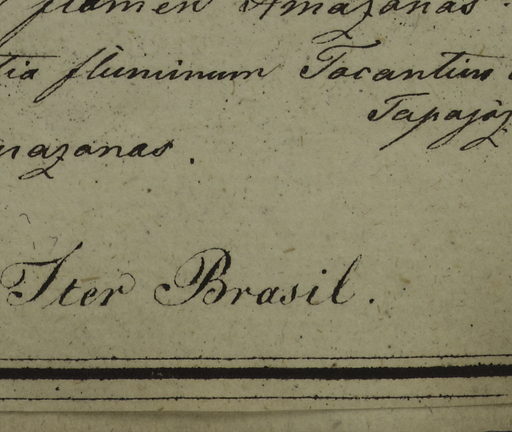 flumen Amazonas.
tia fluminum Tocantins
Tapajòz
mazonas.
Iter Brasil.